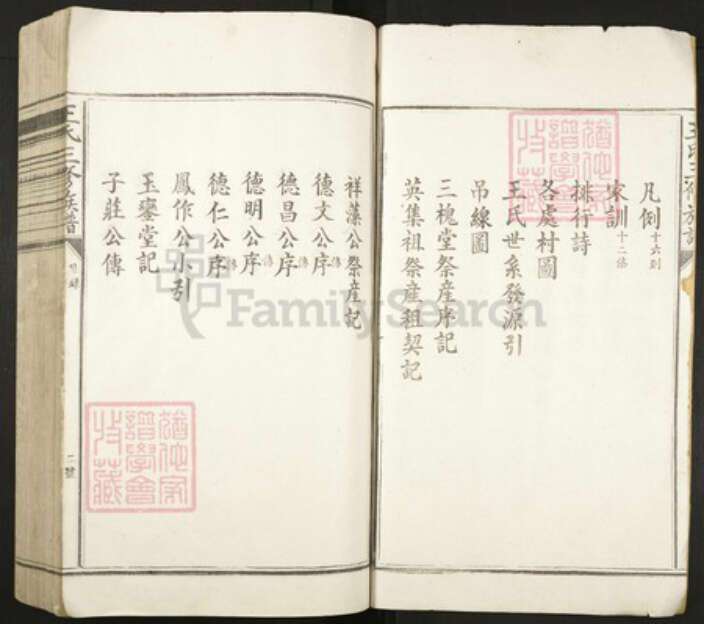 凡例十六則
家訓十二條
排行詩
各處村圖
王氏世系發源引
吊線圖
三槐堂祭產序記
英集祖祭產租契記
祥藻公祭產記
德文公序傳
德昌公序
德明公序傳
德仁公序傳
鳳作公小引
玉鑾堂記
子莊公傳
王氏三修族譜
二號
FamilySearch